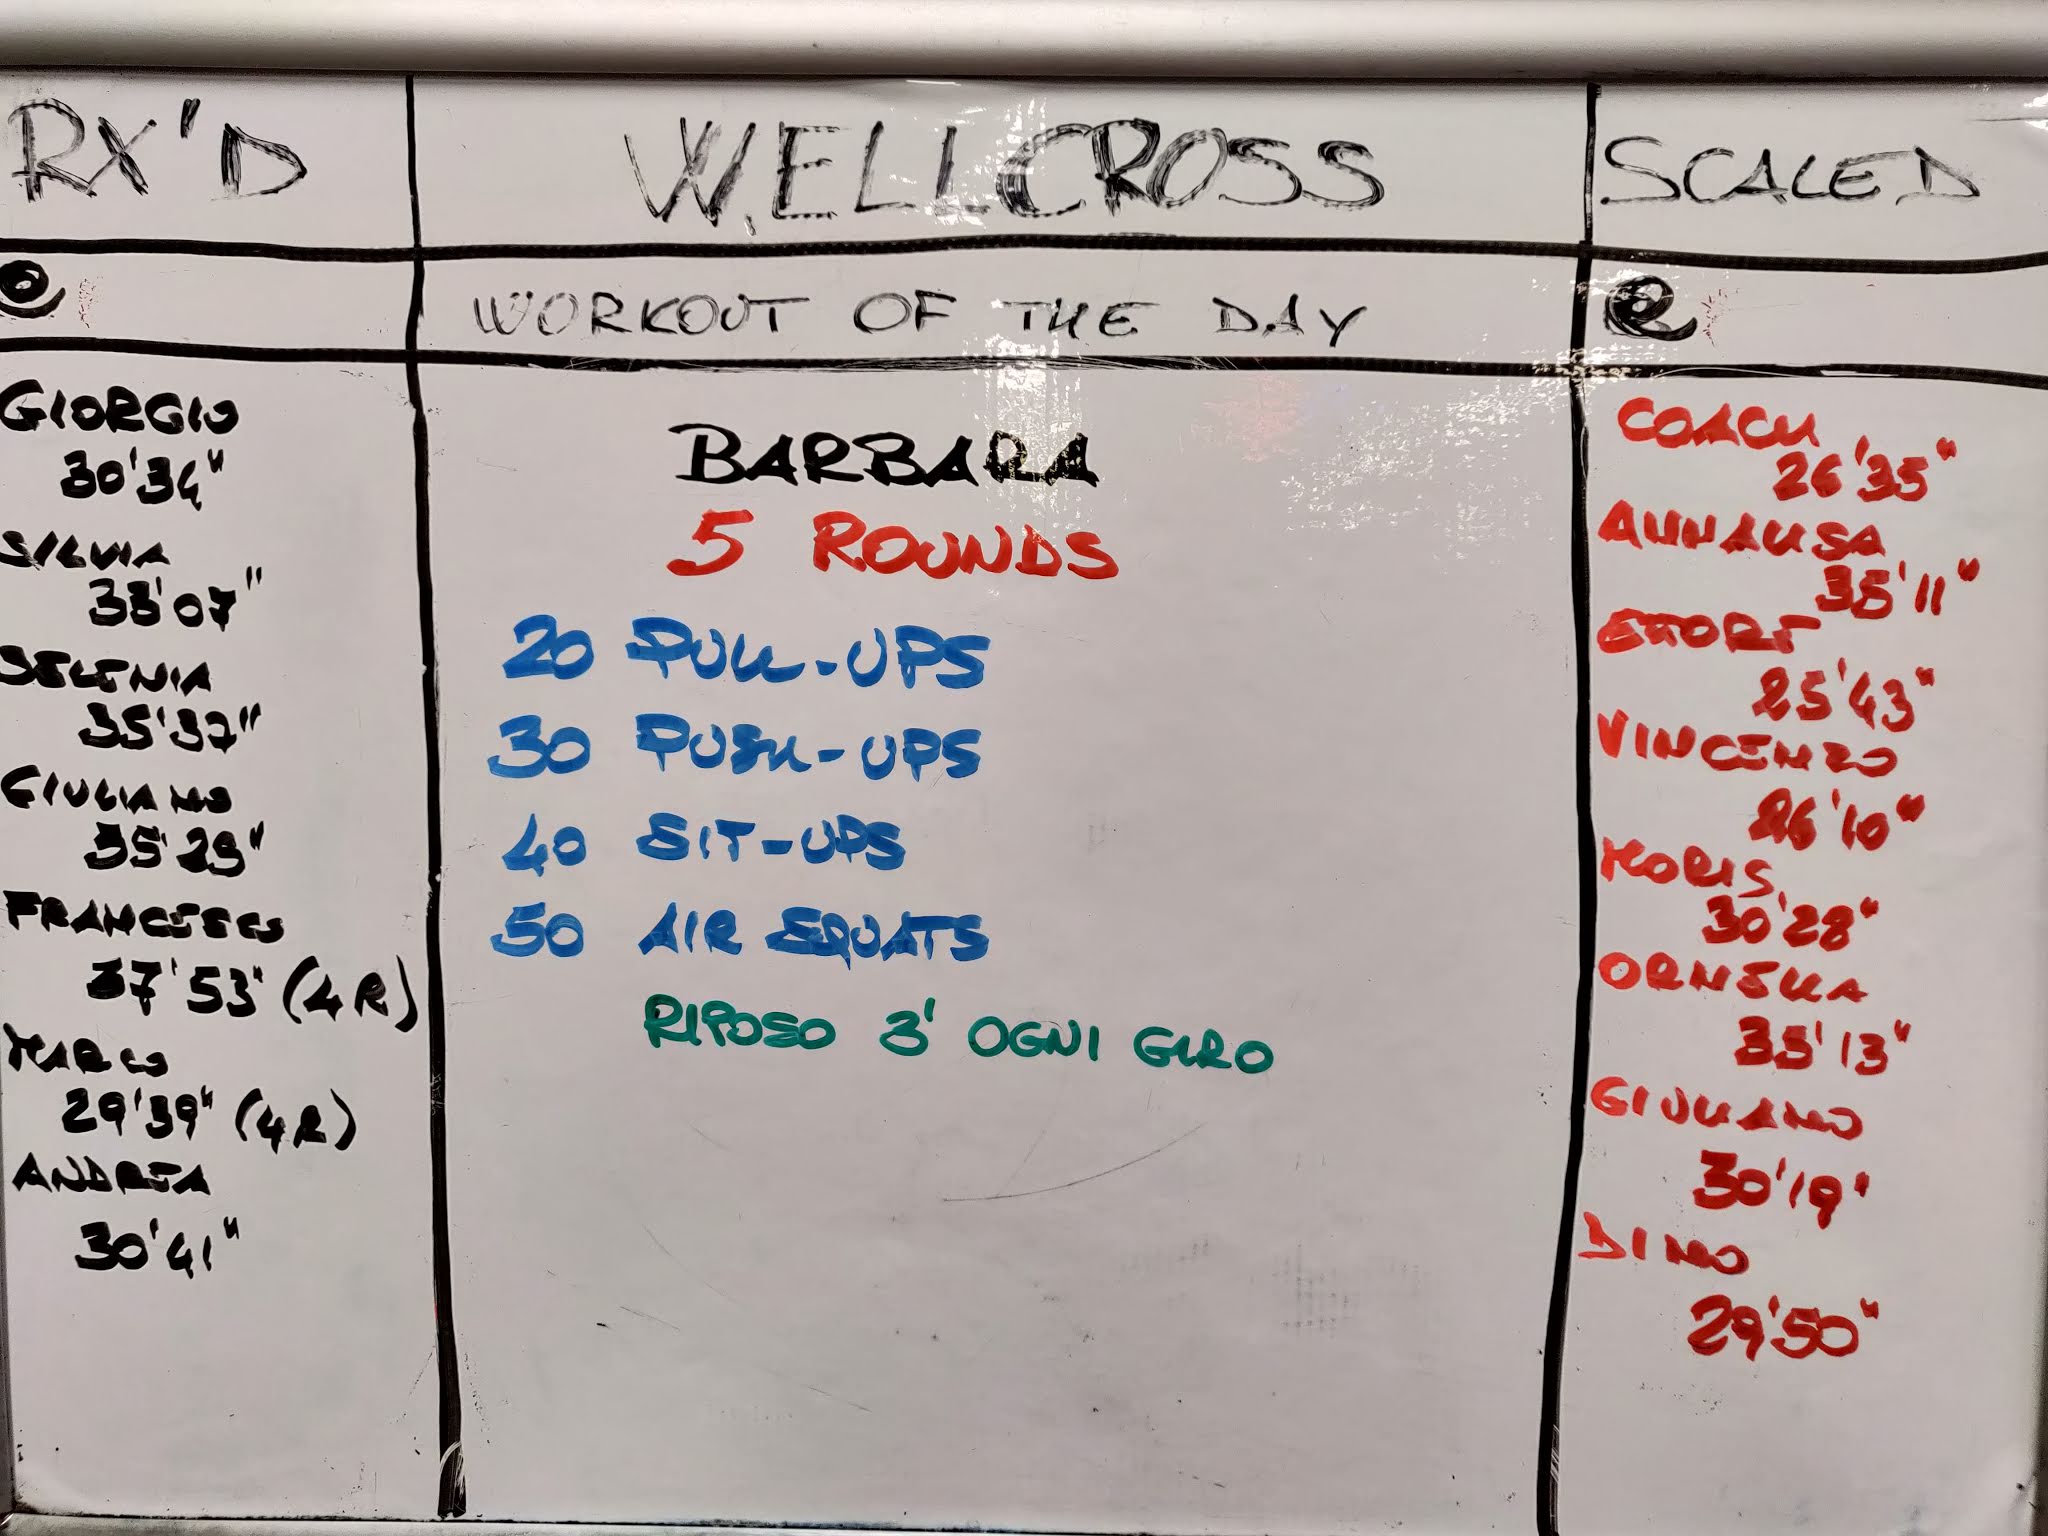 RX'D
WELLCROSS
SCALED
WORKOUT OF THE DAY
GIORGIO
30'34"
SILVIA
33'07"
SELENIA
35'37"
GIULIANO
35'25"
FRANCESCO
37'53" (4R)
MARCO
29'39" (4R)
ANDREA
30'41"
BARBARA
5 ROUNDS
20 PULL-UPS
30 PUSH-UPS
40 SIT-UPS
50 AIR SQUATS
RIPOSO 3' OGNI GIRO
COACH
26'35"
ANNALISA
35'11"
ETTORE
25'43"
VINCENZO
26'10"
MORIS
30'28"
ORNELLA
35'13"
GIULIANO
30'19'
DINO
29'50"